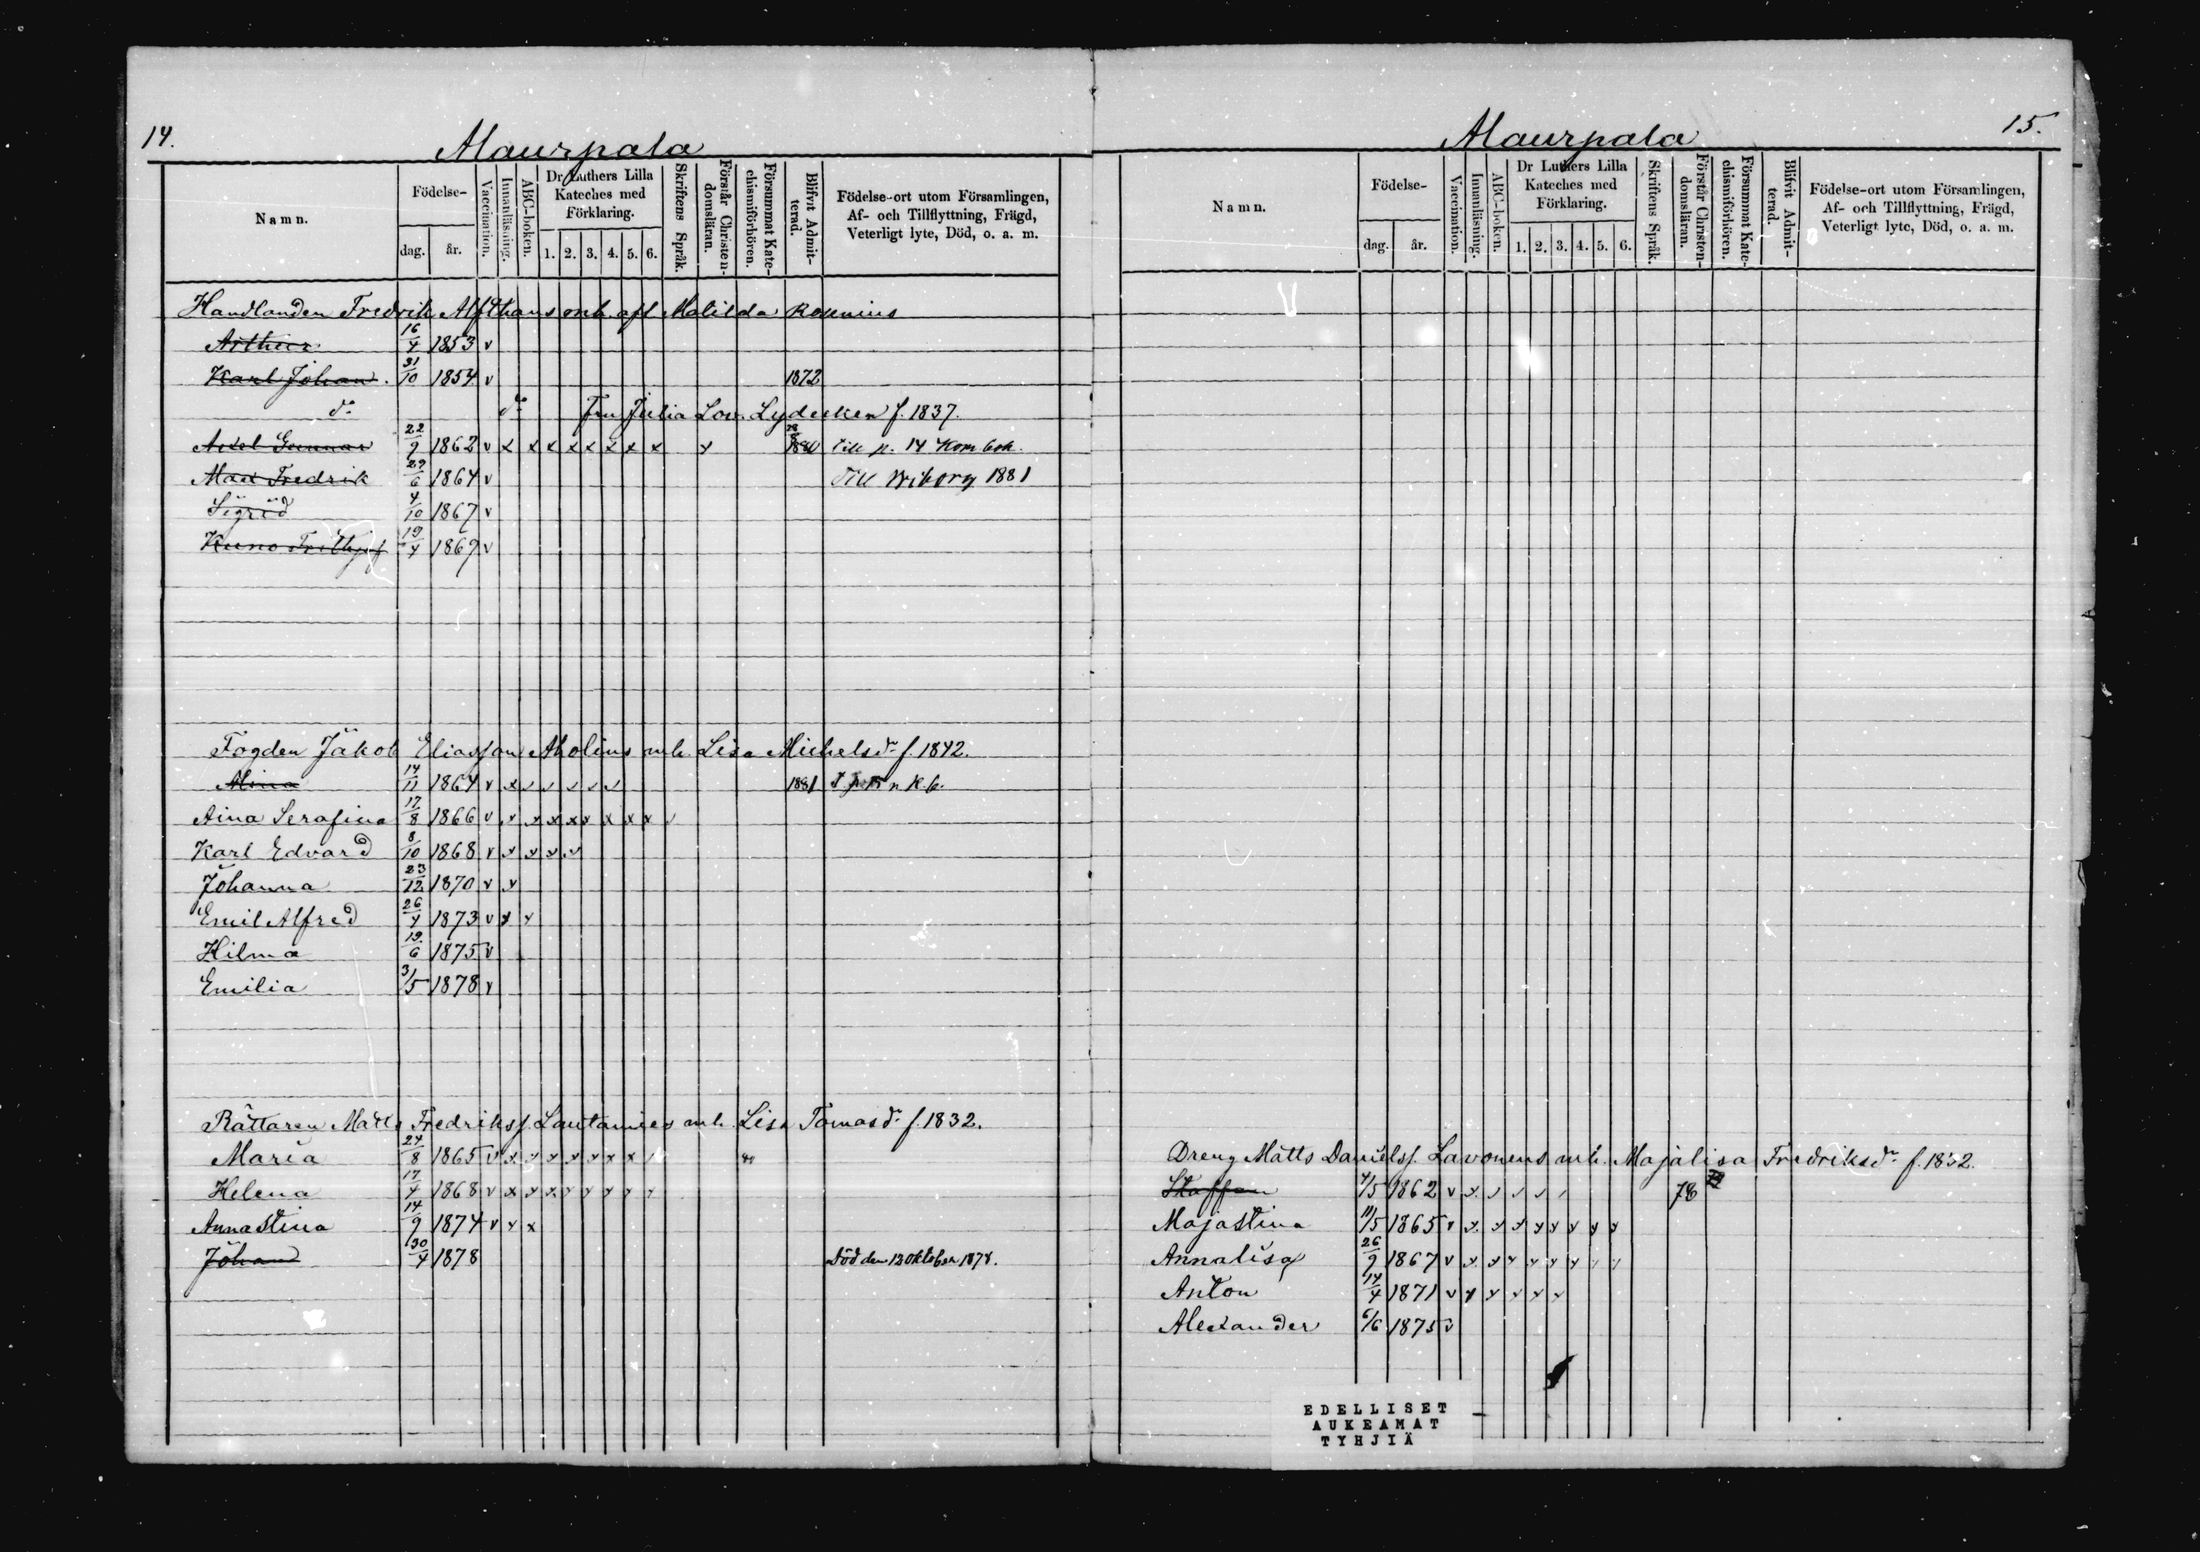 14.
Maurpala
Namn.
Födelse-
dag.
år.
Vaccination.
Innanläsning.
ABC-boken.
Dr Luthers Lilla
Kateches med
Förklaring.
1. 2. 3. 4. 5. 6.
Skriftens Språk.
Förstår Christen-
domsläran.
Försummat Kate-
chismiförhören.
Blifvit Admit-
terad.
Födelse-ort utom Församlingen,
Af- och Tillflyttning, Frägd,
Veterligt lyte, Död, o. a. m.
Handlanden Fredrik Alfthans mh. afl Matilda
Arthur 16/4 1853 v
Karl Johan. 31/10 1854 v 1872
do do Fru Julia Lov. Lydecken f. 1837.
Axel Gunnar 22/9 1862 v x x x x x x x x x 1880 Till p. 14 Kom bok.
Max Fredrik 29/6 1864 v Till Wiborg 1881
Sigrid 4/10 1867 v
Kuno Frithjof 19/4 1869 v
Fogden Jakob Eliasson Aholius mh. Lisa Michelsdr f. 1842.
Mina 14/11 1864 v x v v v v v 1881
Aina Serafina 17/8 1866 v v x x x x x x x v
Karl Edvard 8/10 1868 v v v v v
Johanna 23/12 1870 v v
Emil Alfred 26/4 1873 v x x
Hilma 19/6 1875 v
Emilia 3/5 1878 v
Rättaren Matts Fredrikss. Lautamies mh. Lisa Tomasdr f. 1832.
Maria 24/8 1865 v x x x x x x x
Helena 17/4 1868 v x x x v v v v v
Annastina 14/9 1874 v v x
Johan 30/4 1878 Död den 13 Oktober 1878.
15.
Maurpala
Namn.
Födelse-
dag.
år.
Vaccination.
Innanläsning.
ABC-boken.
Dr Luthers Lilla
Kateches med
Förklaring.
1. 2. 3. 4. 5. 6.
Skriftens Språk.
Förstår Christen-
domsläran.
Försummat Kate-
chismiförhören.
Blifvit Admit-
terad.
Födelse-ort utom Församlingen,
Af- och Tillflyttning, Frägd,
Veterligt lyte, Död, o. a. m.
Dreng Matts Danielss. Lavonens mh. Majalisa Fredriksdr f. 1832.
Staffan 4/5 1862 v x v v v v 78
Majastina 11/5 1865 v x x x x x x x x
Annalisa 26/9 1867 v x x v v v v v v
Anton 14/4 1871 v v v v v v
Alexander 6/6 1875 v
EDELLISET
AUKEAMAT
TYHJIÄ